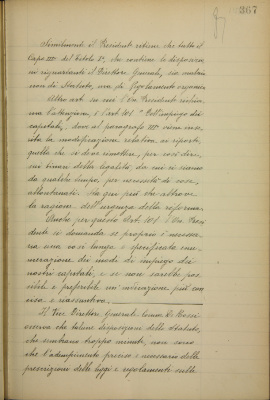 367
Similmente il Presidente ritiene che tutto il
Capo III del titolo 5°, che contiene le disposizio
ni riguardanti il Direttore Generale, sia materia
non di Statuto, ma di Regolamento organico
Altro art. su cui l'On. Presidente richia
ma l'attenzione, è l'art. 101 "Dell'impiego dei
capitali, dove al paragrafo 10° viene inse
rita la modificazione relativa ai riporti,
quella che ci deve rimettere, per così dire,
nei binari della legalità, da cui ci siamo
da qualche tempo, per necessità di cose,
allontanati. Sta qui più che altrove
la ragione dell'urgenza della riforma.
Anche per questo Art. 101 l'On. Presi
dente si domanda se proprio è necessa
ria una così lunga e specificata enu
merazione dei modi di impiego dei
nostri capitali, e se non sarebbe pos
sibile e preferibile un'indicazione più con
cisa e riassuntiva.
Il Vice Direttore Generale Comm. D.
osserva che talune disposizioni dello Statuto,
che sembrano troppo minute, non sono
che l'adempimento preciso e necessario delle
prescrizioni delle leggi e regolamenti sulle